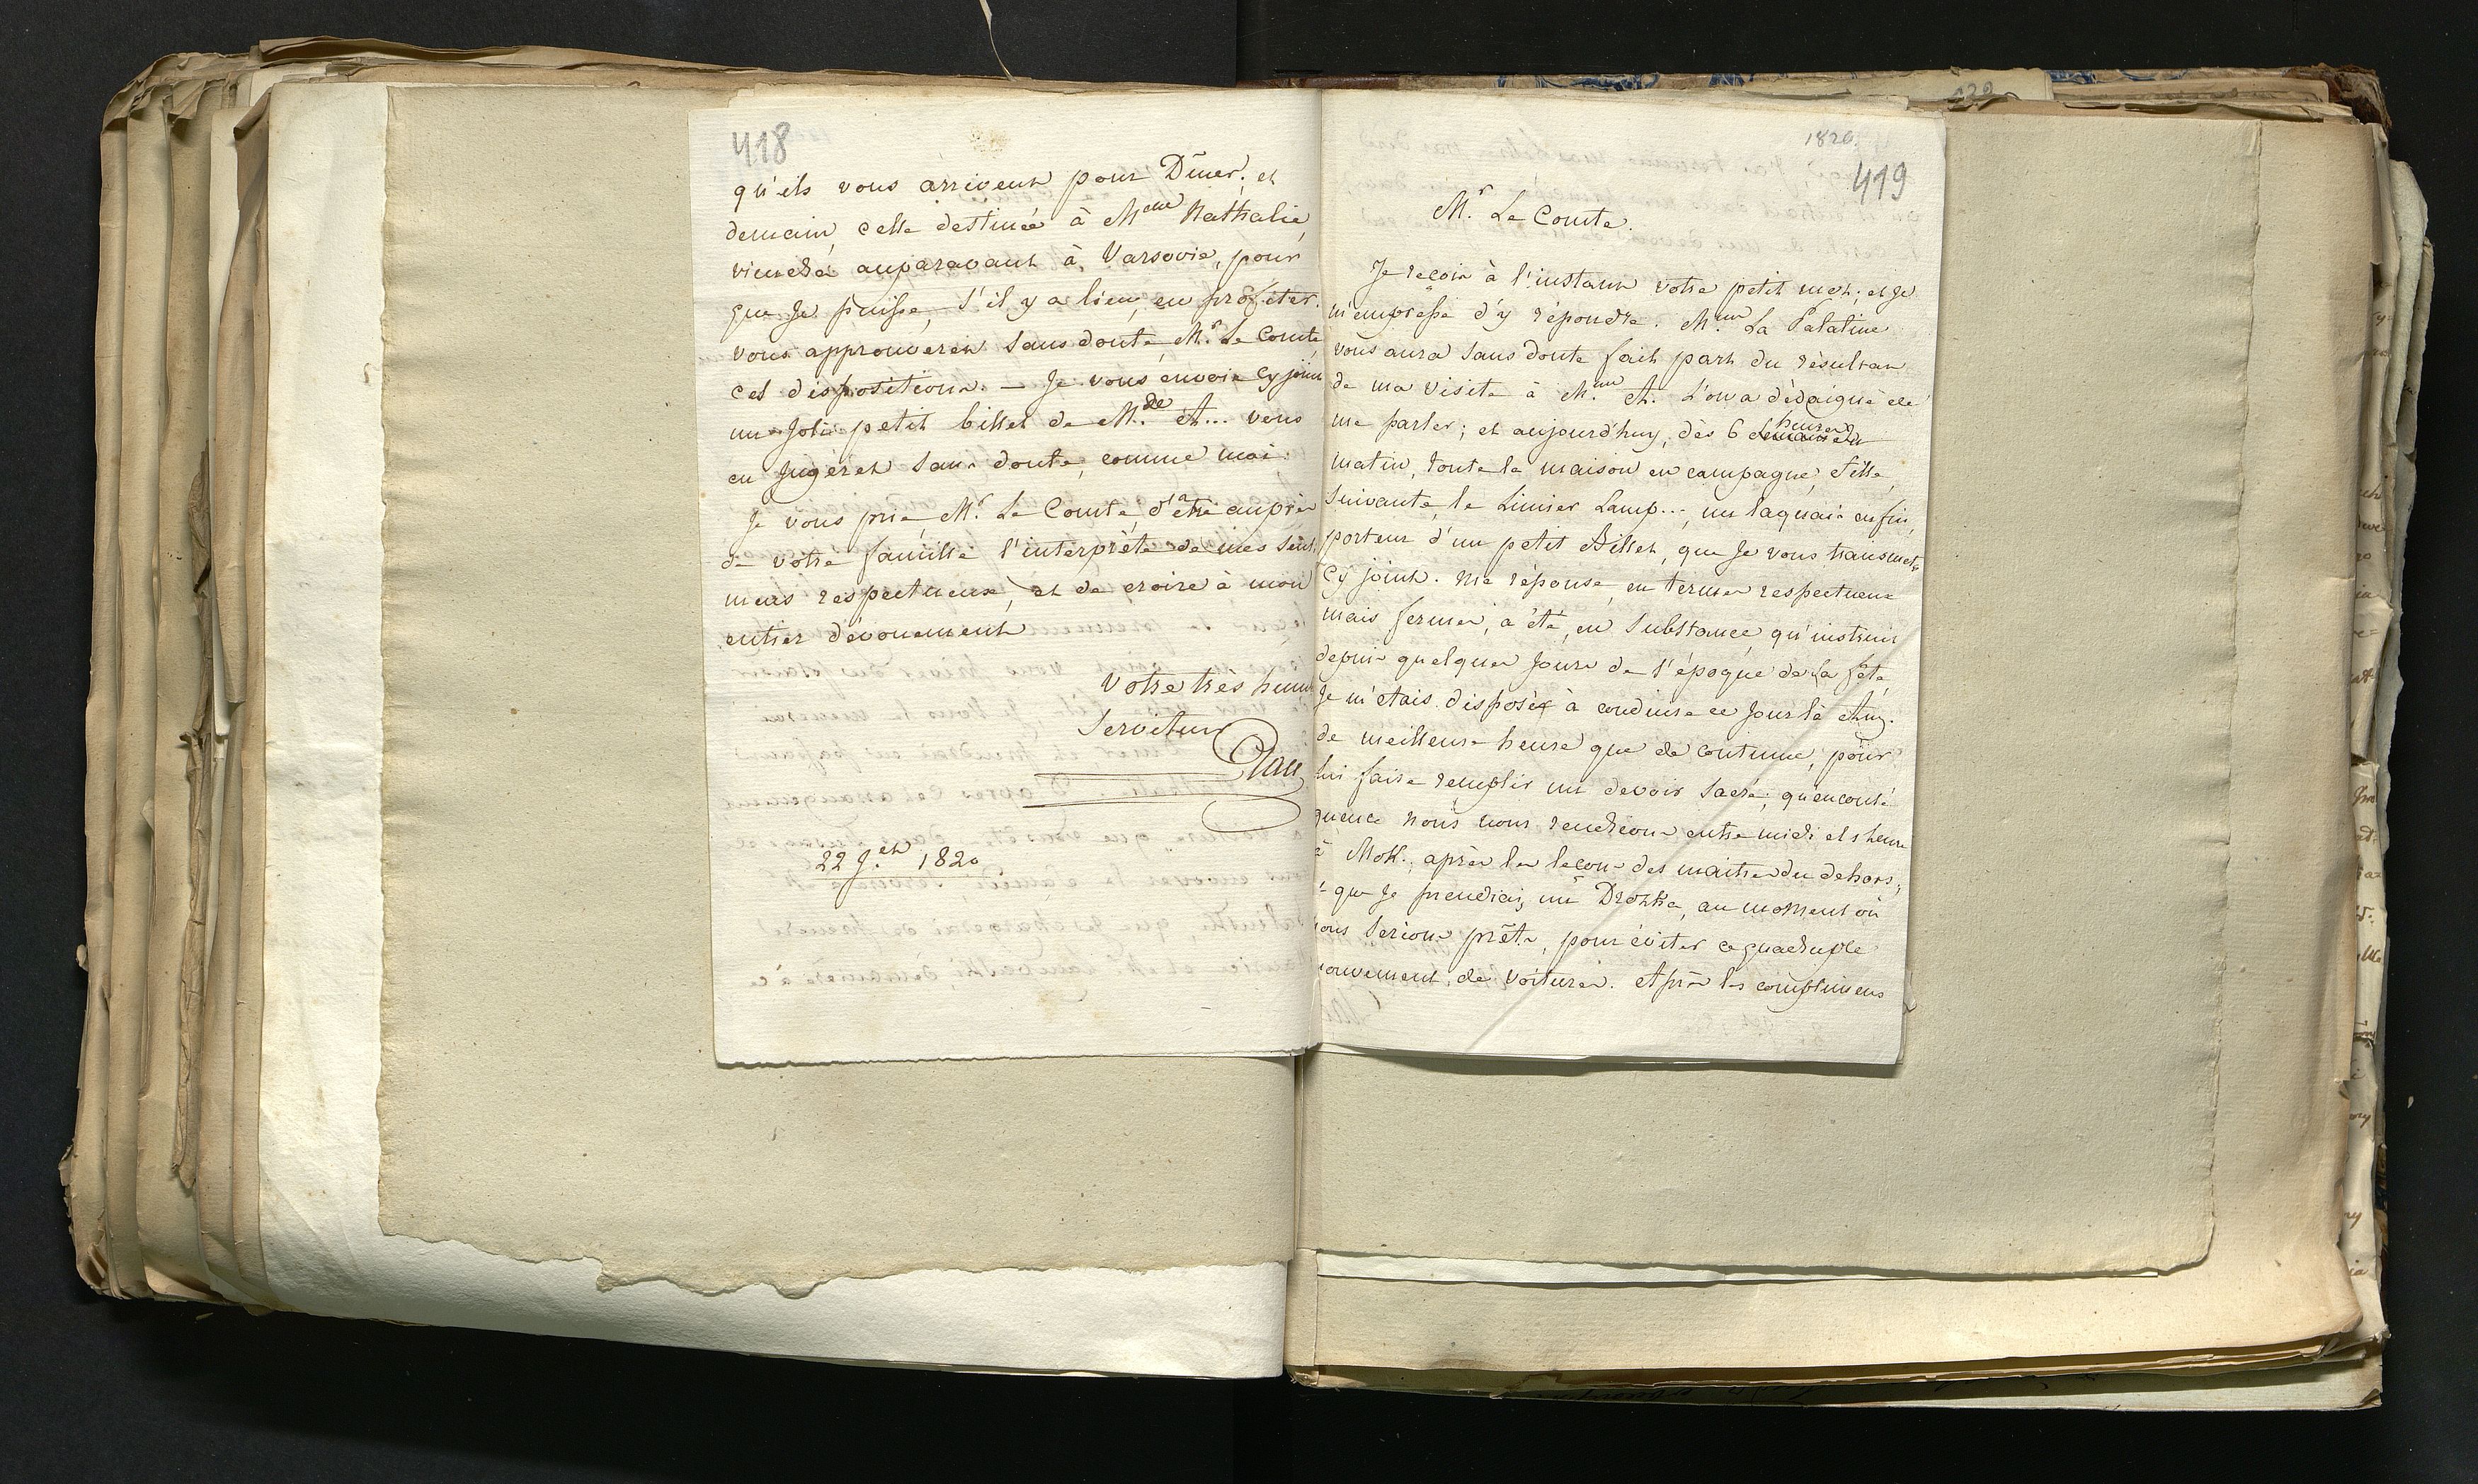 418
qu'ils vous arrivent pour Dîner; et
demain, celle destinée à M.elle Nathalie,
viendra auparavant à Varsovie, pour
que Je puisse, s'il y a lieu, en profiter.
vous approuverez sans doute, Mr. Le Comte,
ces dispositions. — Je vous envoie cy joint
un joli petit billet de M.de A... vous
en Jugerez sans doute, comme moi.
Je vous prie Mr. Le Comte, d'être auprès
de votre famille l'interprète de mes senti
mens respectueux, et de croire à mon
entier dévouement
Votre très humb
Serviteur
22 J.et 1820
1820
419
Mr. Le Comte.
Je reçois à l'instant votre petit mot; et Je
m'empresse d'y répondre. M.me La Palatine
vous aura sans doute fait part du résultat
de ma visite à M.me A. L'on a dédaigné de
me parler; et aujourd'huy, dès 6 heures du
matin, toute la maison en campagne, fille,
suivante, le Limier Lamp..., un laquais enfin,
porteur d'un petit Billet, que Je vous transmets
Cy joint. Ma réponse, en termes respectueux
mais fermes, a été, en substance, qu'instruit
depuis quelques Jours de l'époque de la fête,
Je m'étais disposé à conduire ce Jour là Aug.
de meilleure heure que de coutume, pour
lui faire remplir un devoir sacré; qu'en consé
quence nous nous rendrions entre midi et 1 heure
à Mok. après les leçons des maîtres du dehors;
que Je prendrais un Drozka, au moment où
nous serions prêts, pour éviter ce quadruple
mouvement de voitures. Après les complimens